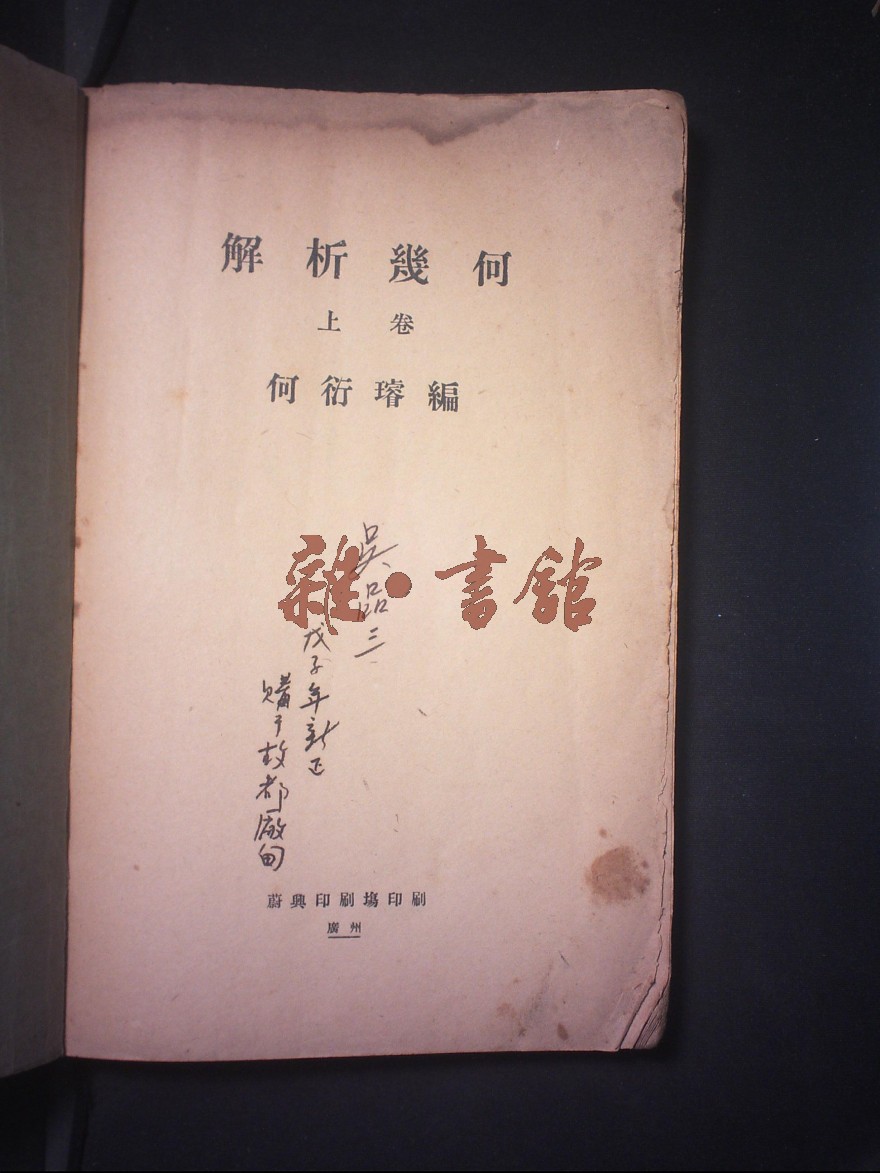 解析幾何
上卷
何衍璿編
雜·書館
吳品三
戊子年新正
購于故都廠甸
蔚興印刷塲印刷
廣州